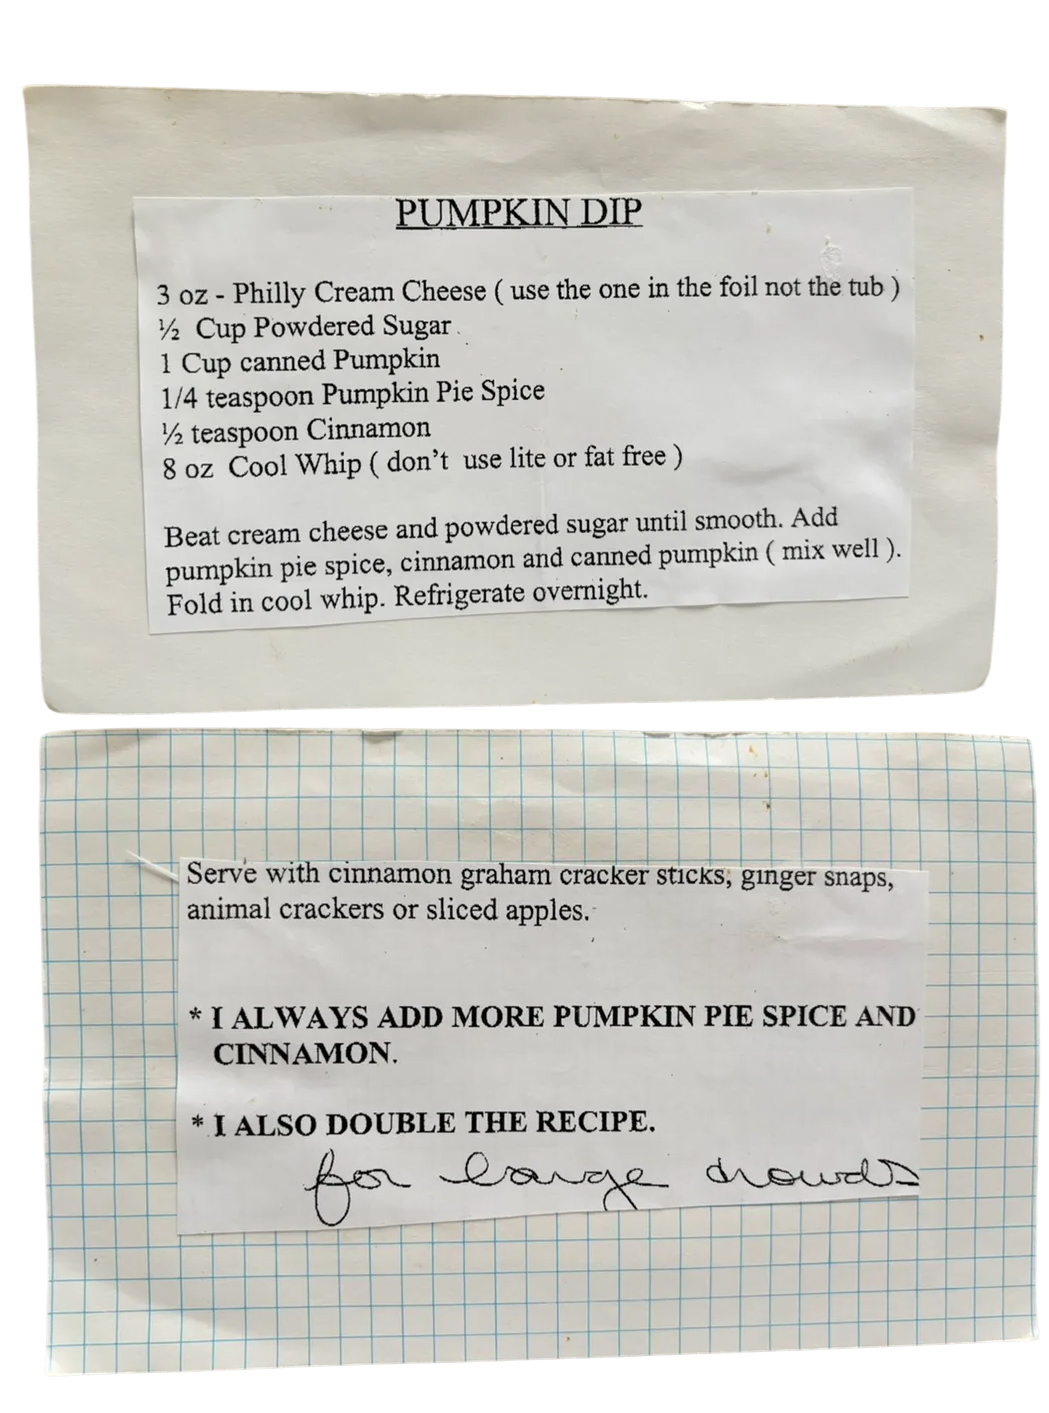 PUMPKIN DIP
3 oz - Philly Cream Cheese ( use the one in the foil not the tub )
½ Cup Powdered Sugar
1 Cup canned Pumpkin
1/4 teaspoon Pumpkin Pie Spice
½ teaspoon Cinnamon
8 oz Cool Whip ( don't use lite or fat free )
Beat cream cheese and powdered sugar until smooth. Add
pumpkin pie spice, cinnamon and canned pumpkin ( mix well ).
Fold in cool whip. Refrigerate overnight.
Serve with cinnamon graham cracker sticks, ginger snaps,
animal crackers or sliced apples.
* I ALWAYS ADD MORE PUMPKIN PIE SPICE AND
CINNAMON.
* I ALSO DOUBLE THE RECIPE.
for large crowds